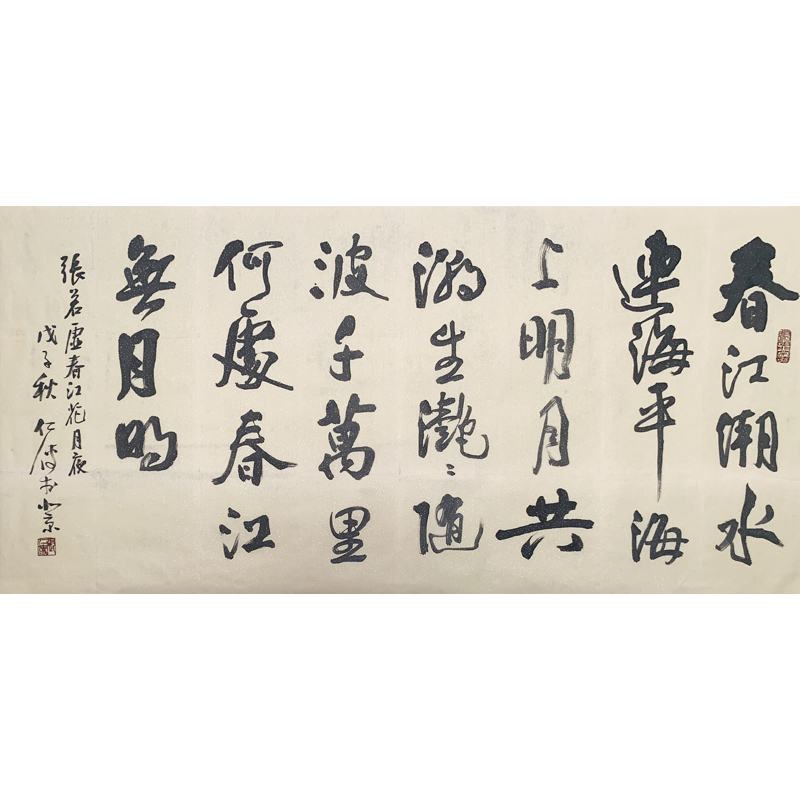 春江潮水
連海平海
上明月共
潮生灧〻隨
波千萬里
何處春江
無月明
張若虛春江花月夜
戊子秋 仁 书北京